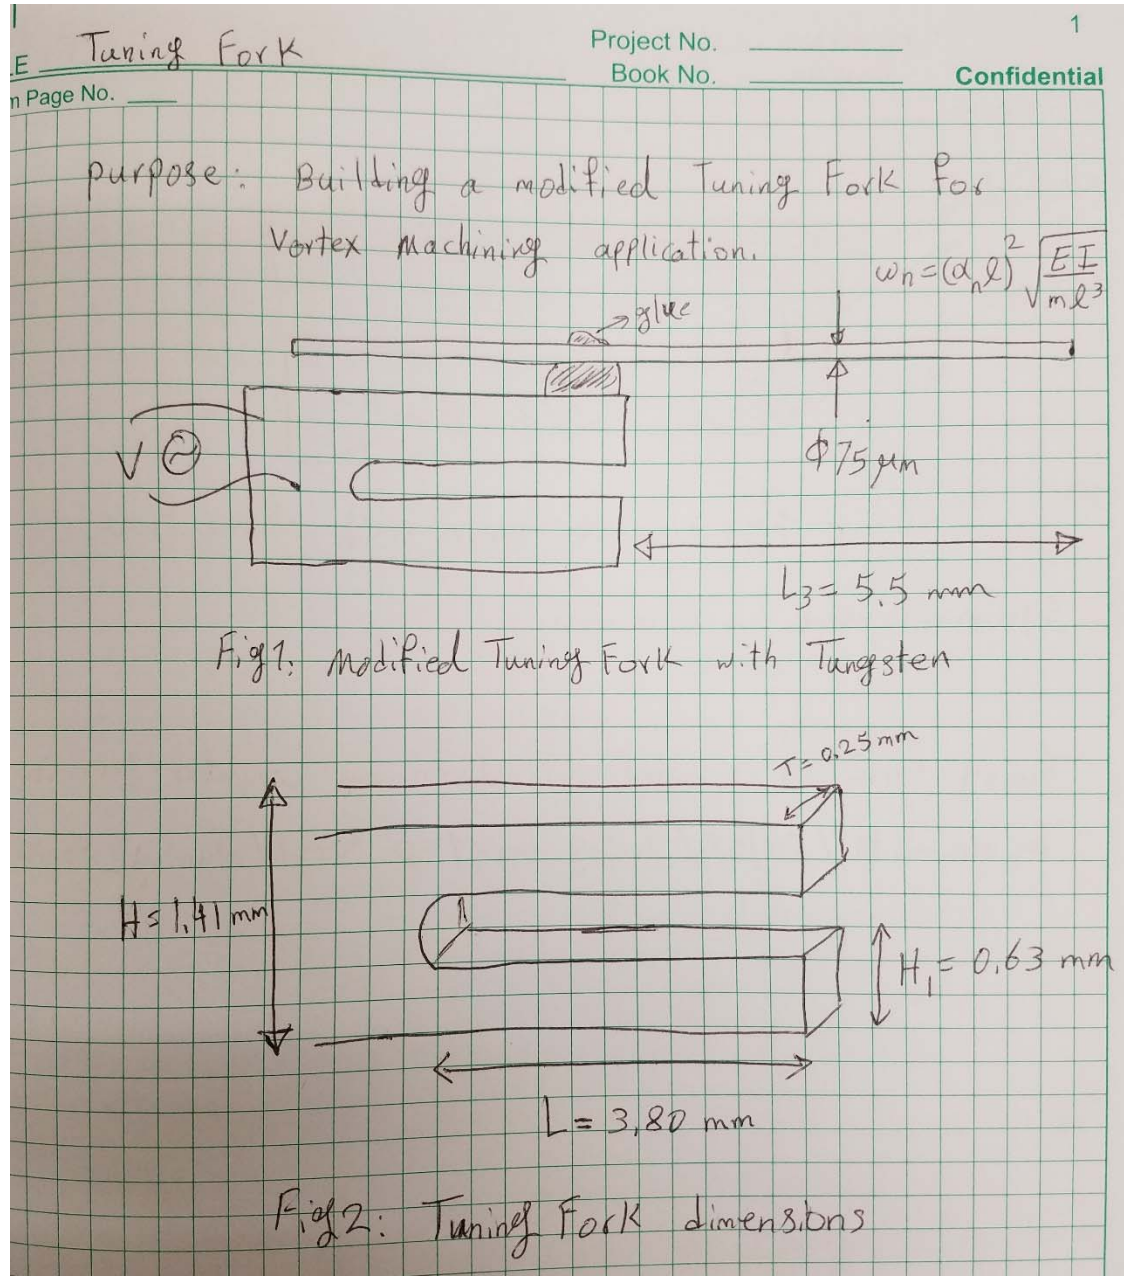 1
E Tuning Fork
Project No.
Book No.
Confidential
n Page No.
purpose: Building a modified Tuning Fork for
Vortex Machining application.
ωn=(αnl)² √(EI/ml³)
glue
V
Φ75 μm
L3= 5.5 mm
Fig1: Modified Tuning Fork with Tungsten
T= 0.25 mm
H= 1.41 mm
H1= 0.63 mm
L= 3.80 mm
Fig2: Tuning Fork dimensions